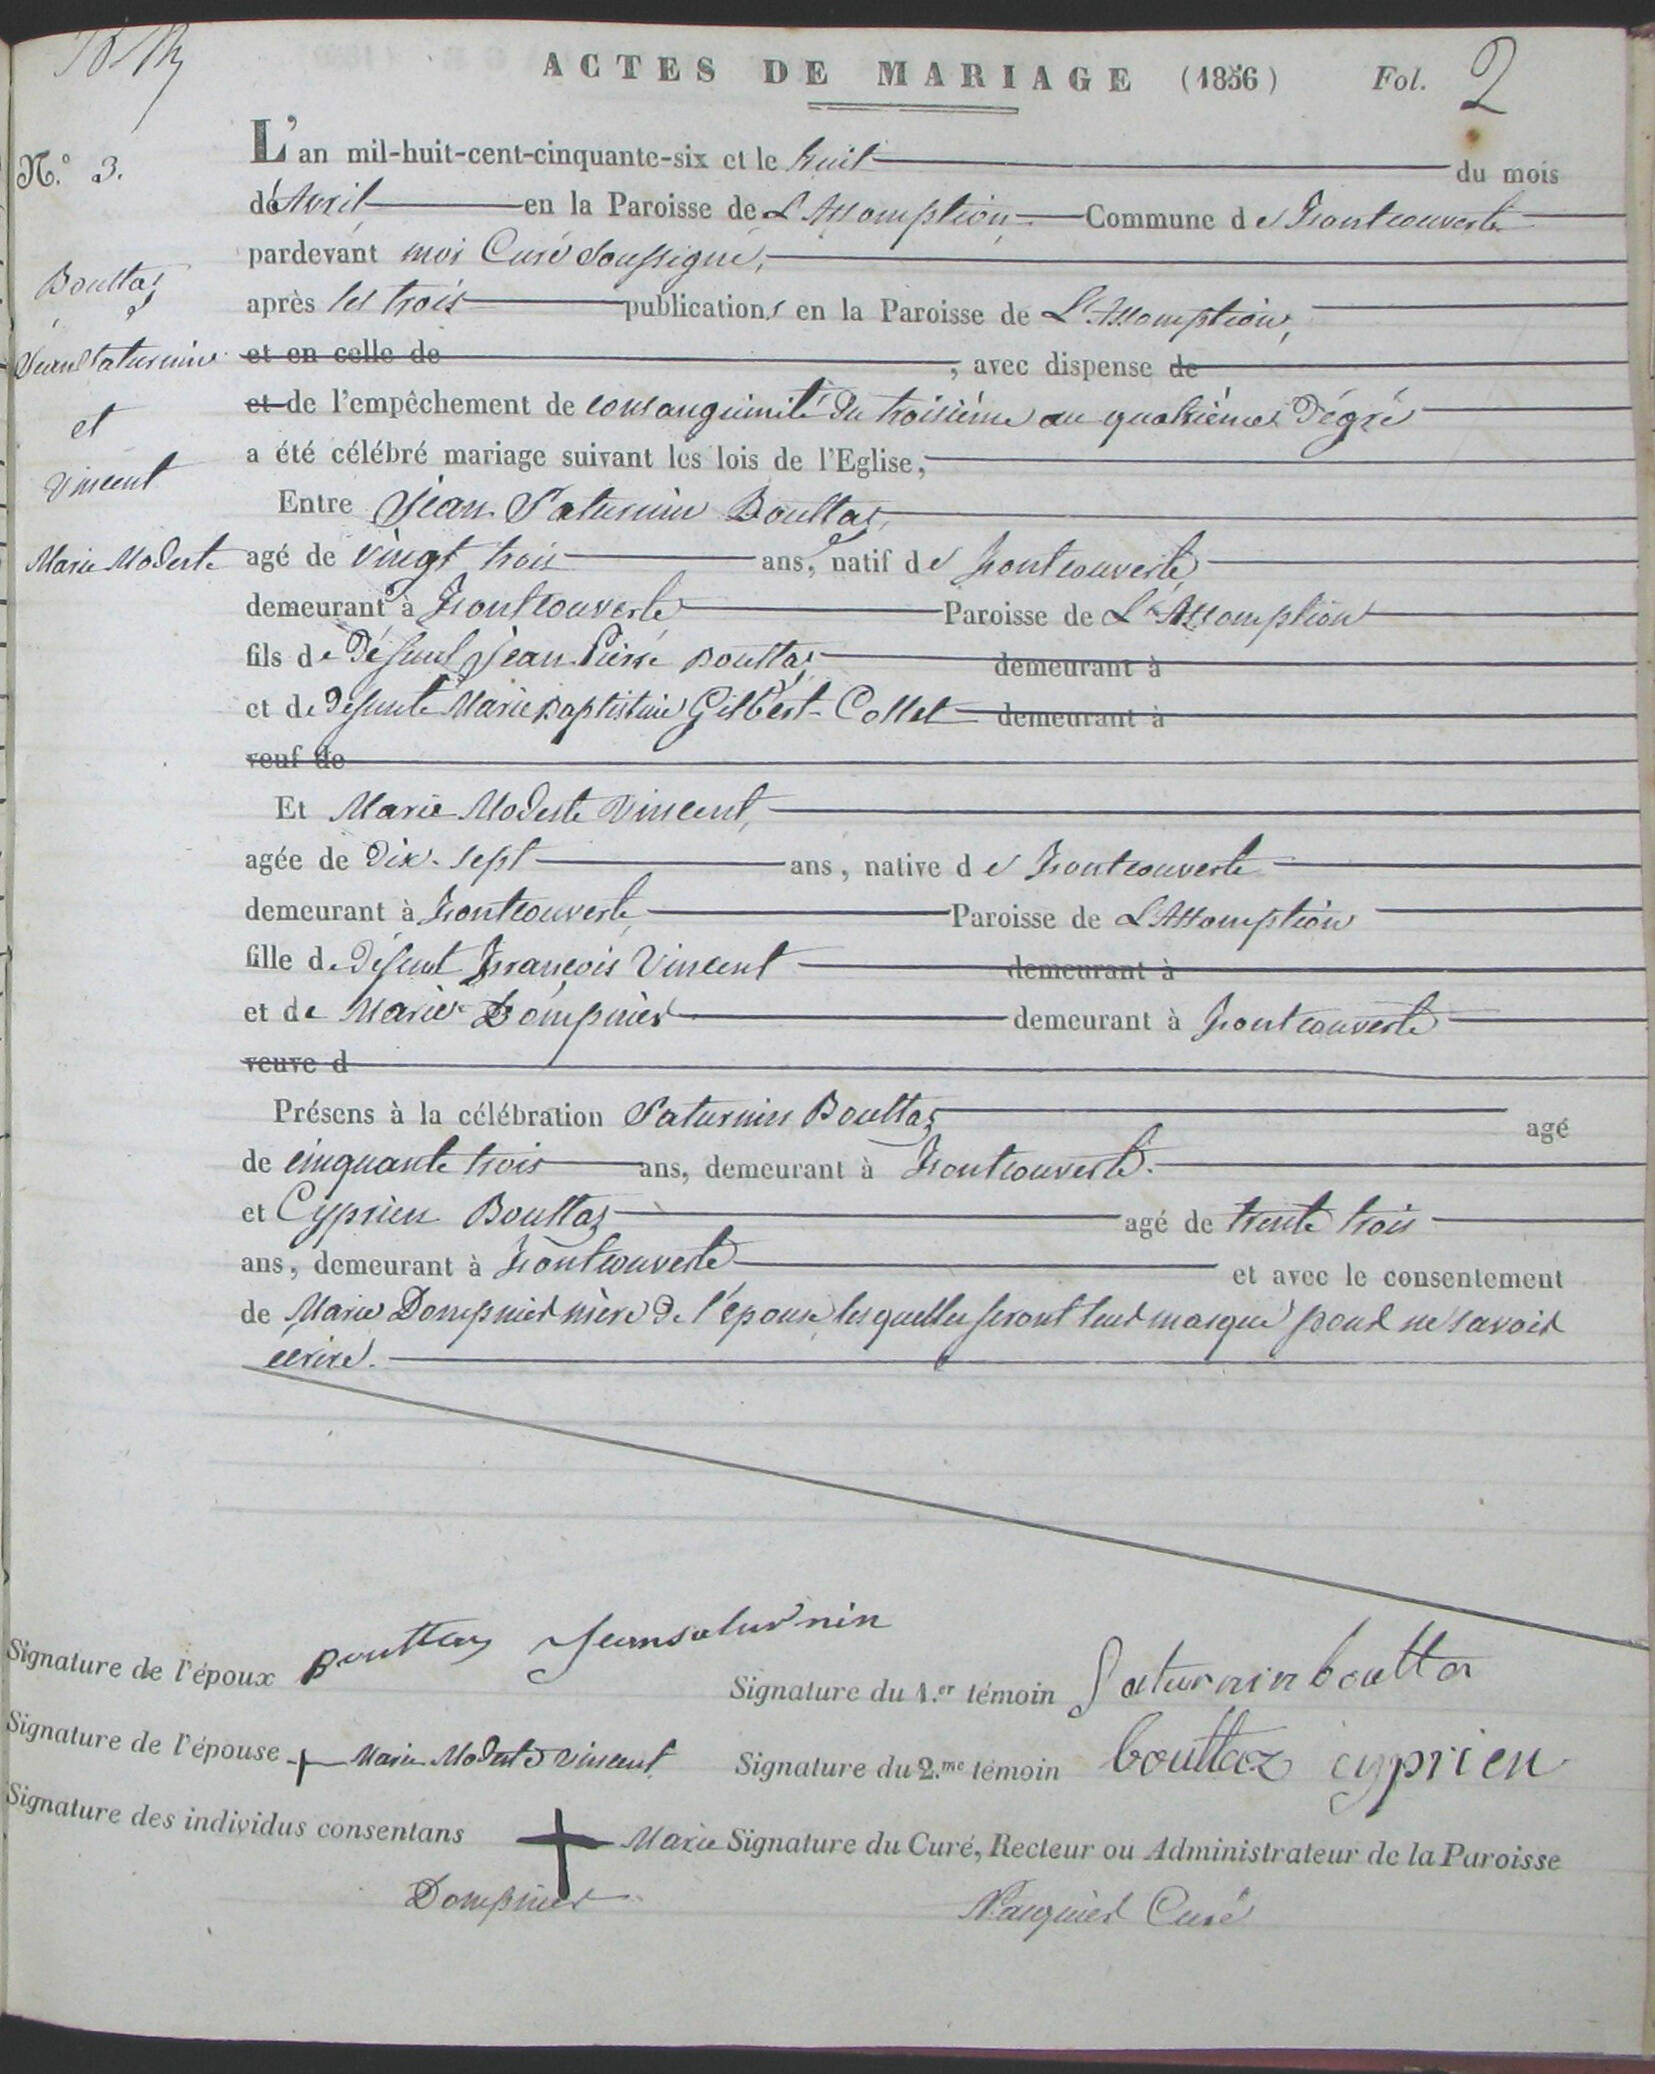 ACTES DE MARIAGE (1856) Fol. 2
N.o 3.
L'an mil-huit-cent-cinquante-six et le huit du mois
d'avril en la Paroisse de L'Assomption Commune de Fontcouverte
pardevant moi Curé Soussigné,
Bouttaz
après les trois publications en la Paroisse de L'Assomption,
Jean Saturnin
et en celle de , avec dispense de
et de l'empêchement de consanguinité du troisième au quatrième dégré
et
a été célébré mariage suivant les lois de l'Eglise,
Vincent
Entre Jean Saturnin Bouttaz,
Marie Modeste
agé de vingt trois ans, natif de Fontcouverte,
demeurant à Fontcouverte Paroisse de L'Assomption
fils de défunt Jean Pierre Bouttaz demeurant à
et de défunte Marie Baptistine Gilbert-Collet demeurant à
veuf de
Et Marie Modeste Vincent,
agée de dix-sept ans, native de Fontcouverte
demeurant à Fontcouverte, Paroisse de L'Assomption
fille de défunt François Vincent demeurant à
et de Marie Dompnier demeurant à Fontcouverte
veuve d
Présens à la célébration Saturnin Bouttaz agé
de cinquante trois ans, demeurant à Fontcouverte.
et Cyprien Bouttaz agé de trente trois
ans, demeurant à Fontcouverte et avec le consentement
de Marie Dompnier mère de l'épouse, lesquelles feront leur marque pour ne savoir
écrire.
Signature de l'époux Bouttaz Jean saturnin
Signature du 1.er témoin Saturnin boutta
Signature de l'épouse + Marie Modeste Vincent
Signature du 2.me témoin bouttaz cyprien
Signature des individus consentans + Marie
Dompnier
Signature du Curé, Recteur ou Administrateur de la Paroisse
Curé